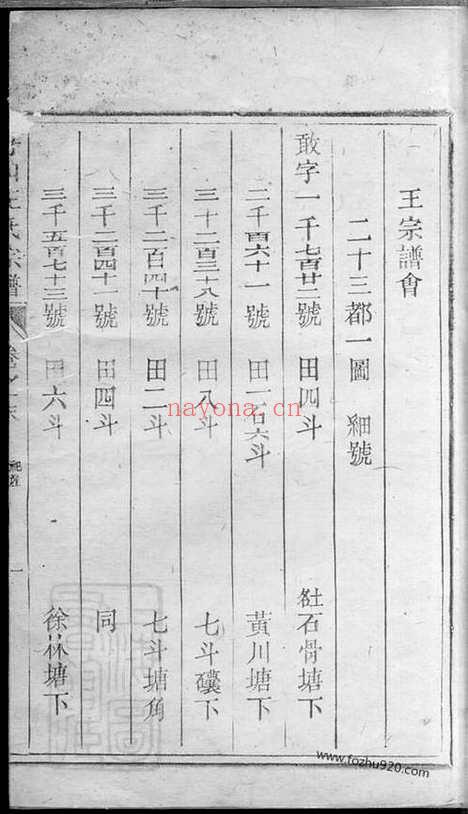 王宗譜會
二十三都一圖 細號
敢字一千七百廿二號 田四斗 社石骨塘下
二千百六十一號 田一石六斗 黃川塘下
三十二百三十八號 田八斗 七斗磥下
三千二百四十號 田二斗 七斗塘角
三千二百四十一號 田四斗 同
三千五百七十三號 田六斗 徐林塘下
王氏宗譜
nayona.cn
www.fozhu920.com